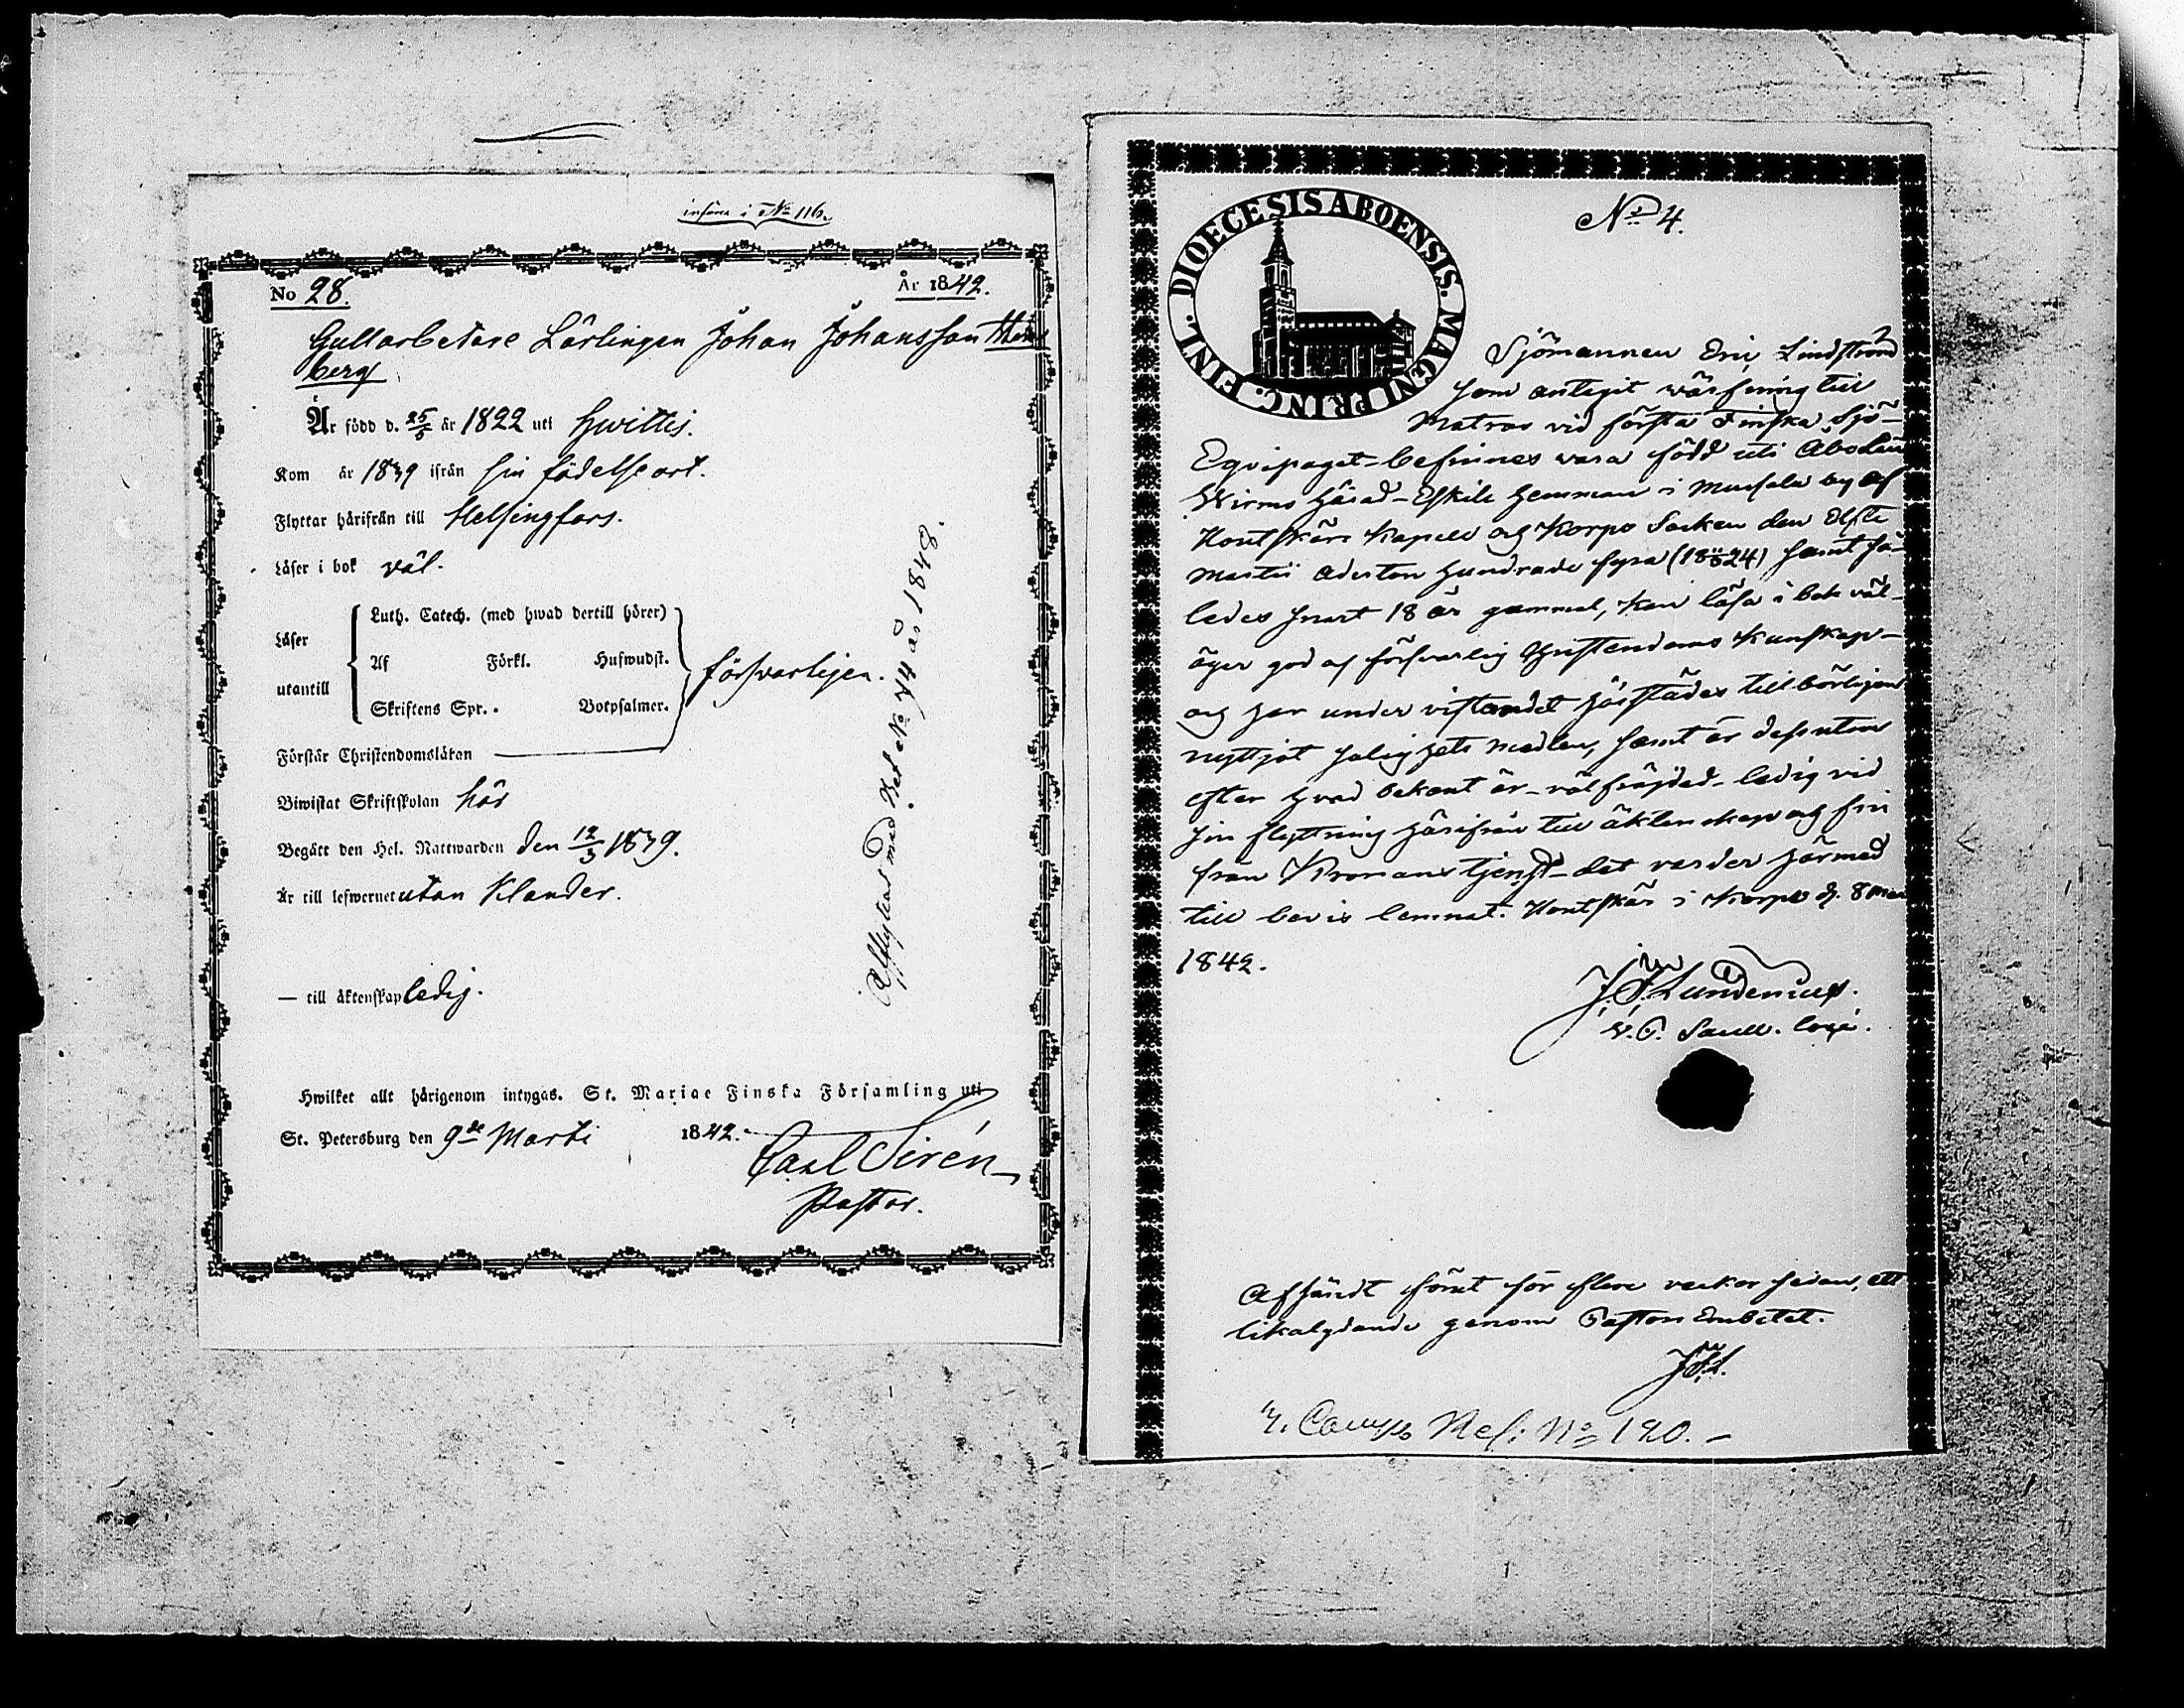 införd i No 116.
No 28. År 1842.
Gullarbetare Lärlingen Johan Johansson
berg
Är född d. 25/5 år 1822 uti Hwittis.
Kom år 1839 ifrån sin födelseort.
Flyttar härifrån till Helsingfors.
Läser i bok väl.
Läser utantill
Luth. Catech. (med hwad dertill hörer)
Af Förkl. Hufwudst.
Skriftens Spr. Botpsalmer.
försvarligen.
Förstår Christendomsläran
Biwistat Skriftskolan här
Begått den Hel. Nattwarden den 12/3 1839.
Är till lefwernet utan Klander.
— till äktenskap ledig.
Afflyttad med Bet. No 44 år 1848.
Hwilket allt härigenom intygas. St. Mariae Finska Församling uti
St. Petersburg den 9de Marti 1842.
Carl Sirén
Pastor.
DIOECESIS ABOENSIS. MAGNI PRINC. FINL.
No 4.
Sjömannen Eric Lindström
som antagit värfning till
Matros vid första Finska Sjö-
Eqvipaget befinnes vara född uti Åbo Län
Wirmo Härad Eskils Hemman i Mussala by af
Houtskärs Kapell och Korpo Socken den Elfte
Martii Aderton Hundrade fyra (18 11/3 24) samt så-
ledes snart 18 år gammal, kan läsa i bok väl-
äger god och försvarlig Christendoms Kunskap-
och har under vistandet härstädes tillbörligen
nyttjat salighets medlen, samt är dessutom
efter hvad bekant är väl frägdad ledig vid
sin flyttning härifrån till äktenskap och fri
från Kronans tjenst det varder härmed
till bevis lemnat. Houtskär i Korpo d. 8 Mar
1842.
J. F. Lundenius.
V. P. Sacell. loci.
Afsändt förut för flere veckor sedan, ett
likalydande genom Pastors Embetet.
J.F.L.
4. Comp. No 120.